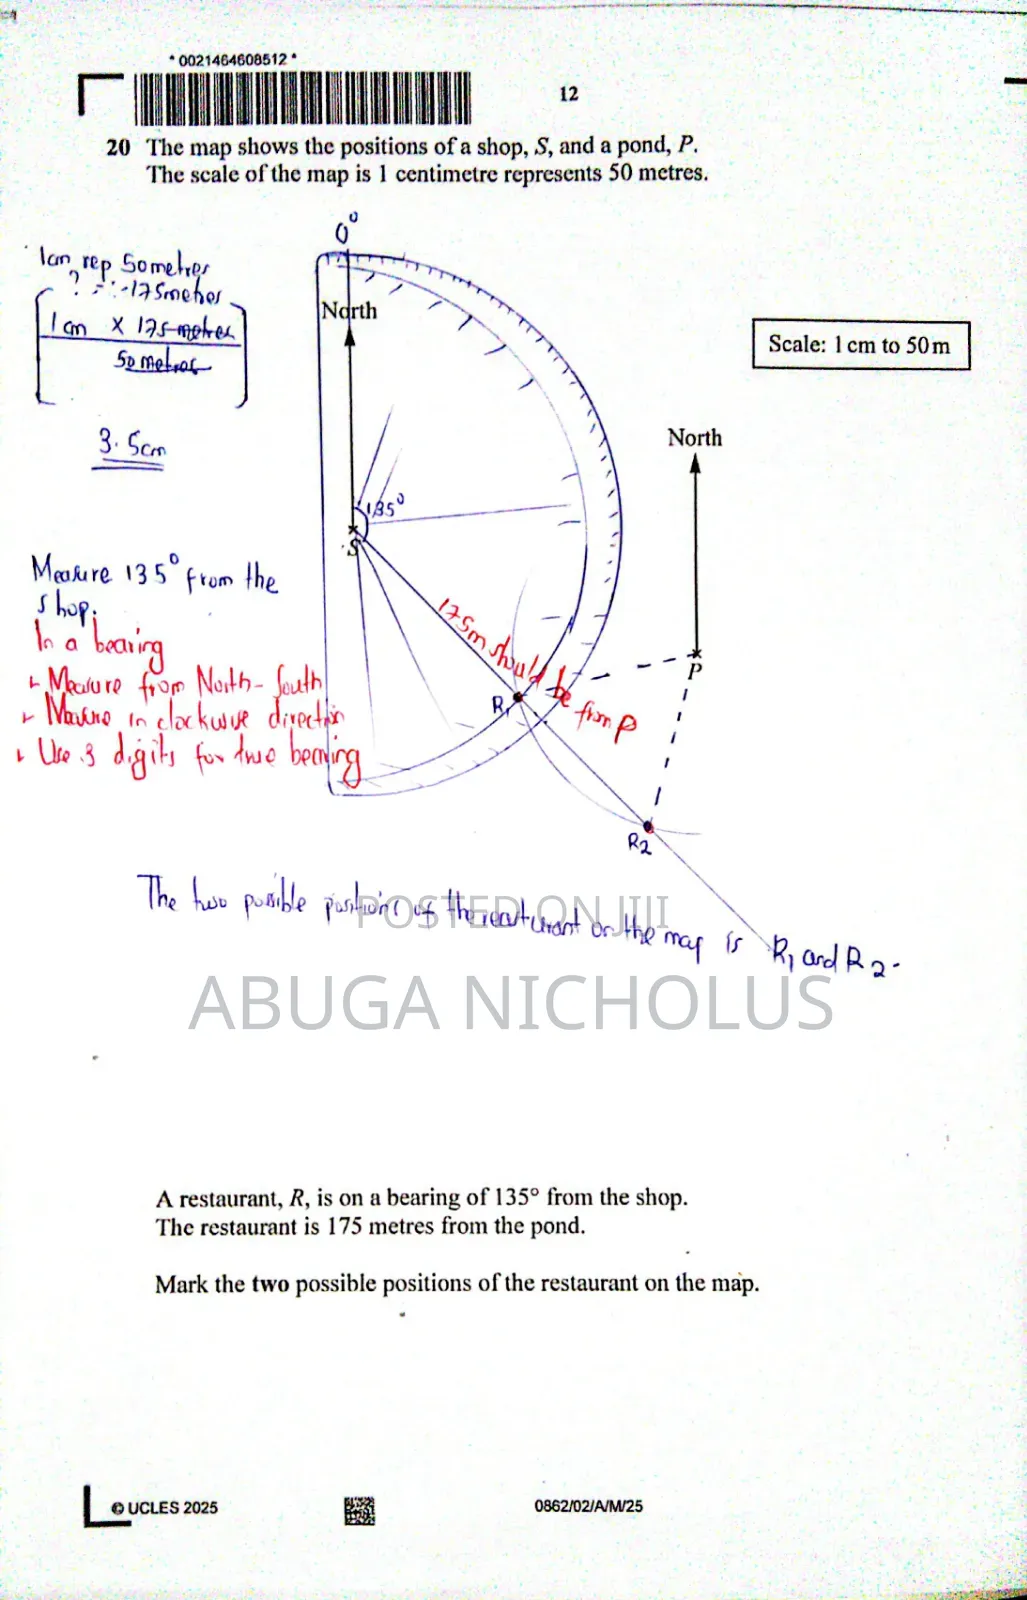 * 0021464608512 *
12
20 The map shows the positions of a shop, S, and a pond, P.
The scale of the map is 1 centimetre represents 50 metres.
0°
1cm rep 50metres
? = :-175metres
1 cm X 175 metres
50 metres
3.5cm
North
Scale: 1 cm to 50 m
North
135°
S
Measure 135° from the
shop.
In a bearing
Measure from North-South
Measure in clockwise direction
Use 3 digits for true bearing
175m should be from P
P
R1
R2
The two possible positions of the restaurant on the map is R1 and R2.
POSTED ON JIJI
ABUGA NICHOLUS
A restaurant, R, is on a bearing of 135° from the shop.
The restaurant is 175 metres from the pond.
Mark the two possible positions of the restaurant on the map.
© UCLES 2025
0862/02/A/M/25